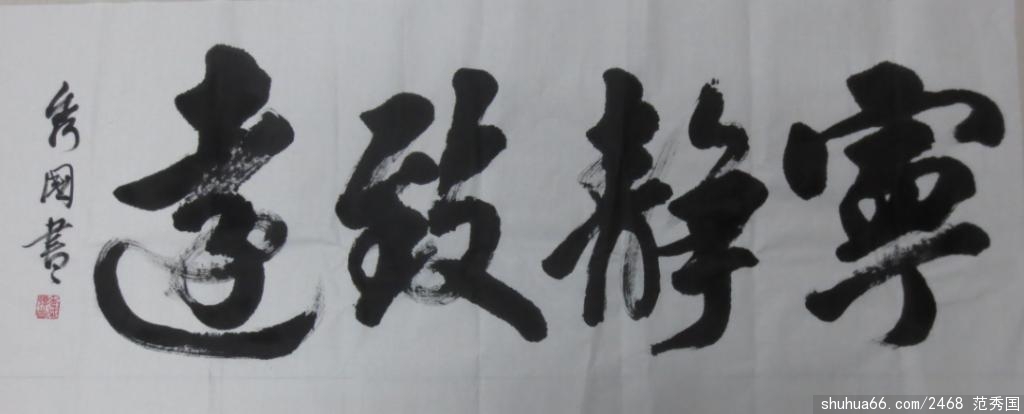 寧靜致遠
秀國書
shuhua66.com/2468 范秀国